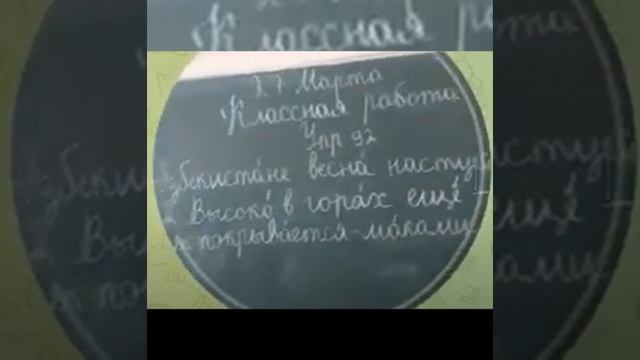 27 Марта
Классная работа
Упр 92
збекиста́не весна́ насту
Высоко́ в гора́х ещё
покрыва́ется ма́ками